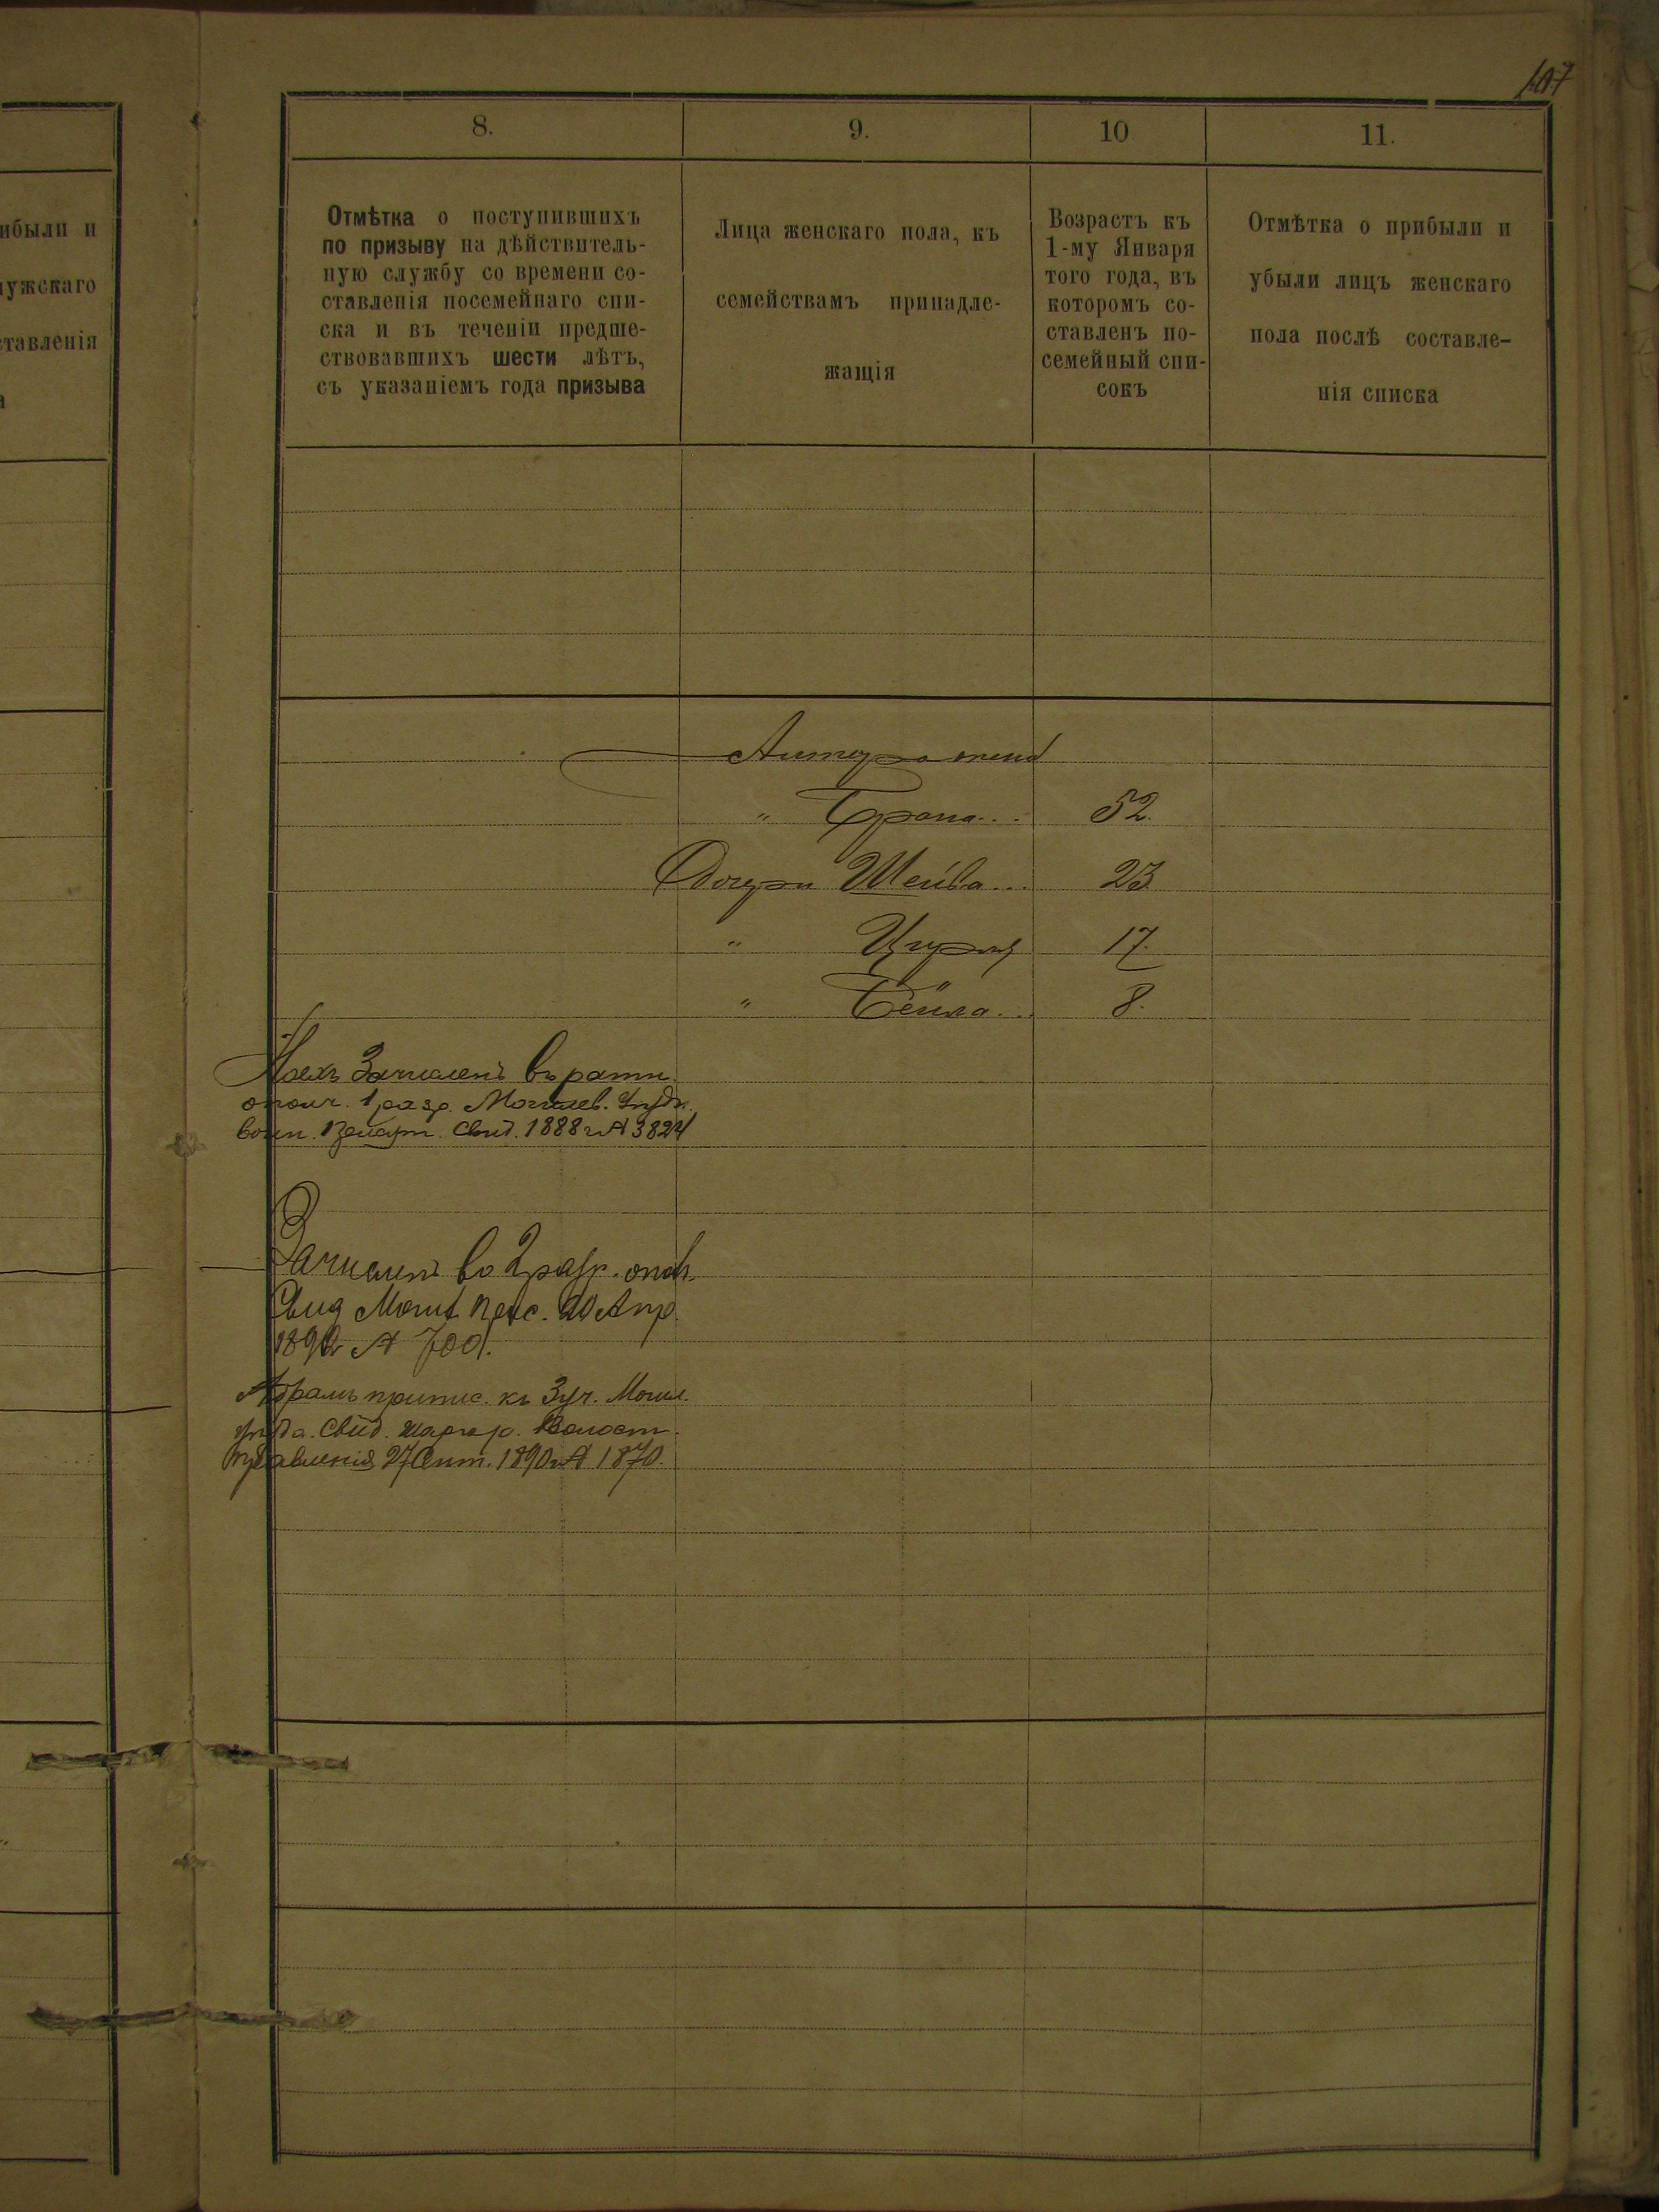 107
ибыли и
мужскаго
ставленія
а
8.
9.
10
11.
Отмѣтка о поступившихъ
по призыву на дѣйствитель-
ную службу со времени со-
ставленія посемейнаго спи-
ска и въ теченіи предше-
ствовавшихъ шести лѣтъ,
съ указаніемъ года призыва
Лица женскаго пола, къ
семействамъ принадле-
жащія
Возрастъ къ
1-му Января
того года, въ
которомъ со-
ставленъ по-
семейный спи-
сокъ
Отмѣтка о прибыли и
убыли лицъ женскаго
пола послѣ составле-
нія списка
жена
" 52.
Дочери Шейва 23
" 17.
" Бейла 8.
Зачисленъ въ ратн.
ополч. 1 разр. Могилев.
воин. Свид. 1888 г № 3824
Зачисленъ во 2 разр. опол.
Свид 20 Апр.
189 г № 700.
Абрамъ припис. къ 3 уч. Могил.
уѣзда. Свид. Шаргор. Волостн.
Правленія 27 Сент. 1890 г № 1870.